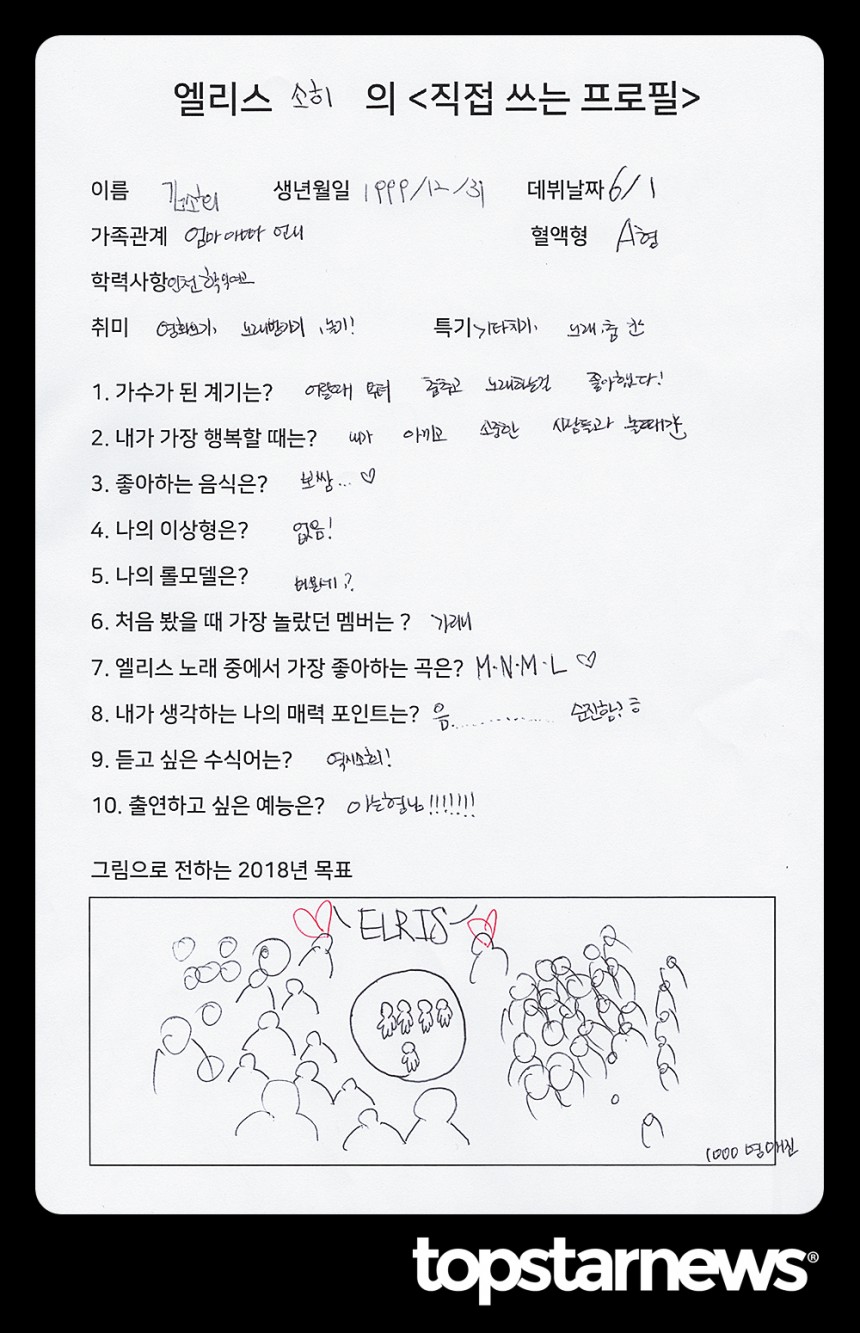 엘리스 소히 의 <직접 쓰는 프로필>
이름 김소희 생년월일 1999/12/31 데뷔날짜 6/1
가족관계 엄마 아빠 언니 혈액형 A형
학력사항 인천
취미 영화보기, 노래반가기, 놀기! 특기 기타치기, 노래, 춤
1. 가수가 된 계기는? 어릴때 부터 춤추고 노래하는걸 좋아했다!
2. 내가 가장 행복할 때는? 내가 아끼고 소중한 사람들과 놀때
3. 좋아하는 음식은? 보쌈... ♡
4. 나의 이상형은? 없음!
5. 나의 롤모델은? 비욘세?
6. 처음 봤을 때 가장 놀랐던 멤버는 ? 가린이
7. 엘리스 노래 중에서 가장 좋아하는 곡은? M·N·M·L ♡
8. 내가 생각하는 나의 매력 포인트는? 음.............. 순진함? ㅎ
9. 듣고 싶은 수식어는? 역시소희!
10. 출연하고 싶은 예능은? 아는형님!!!!!!!
그림으로 전하는 2018년 목표
ELRIS
1000 명
topstarnews®